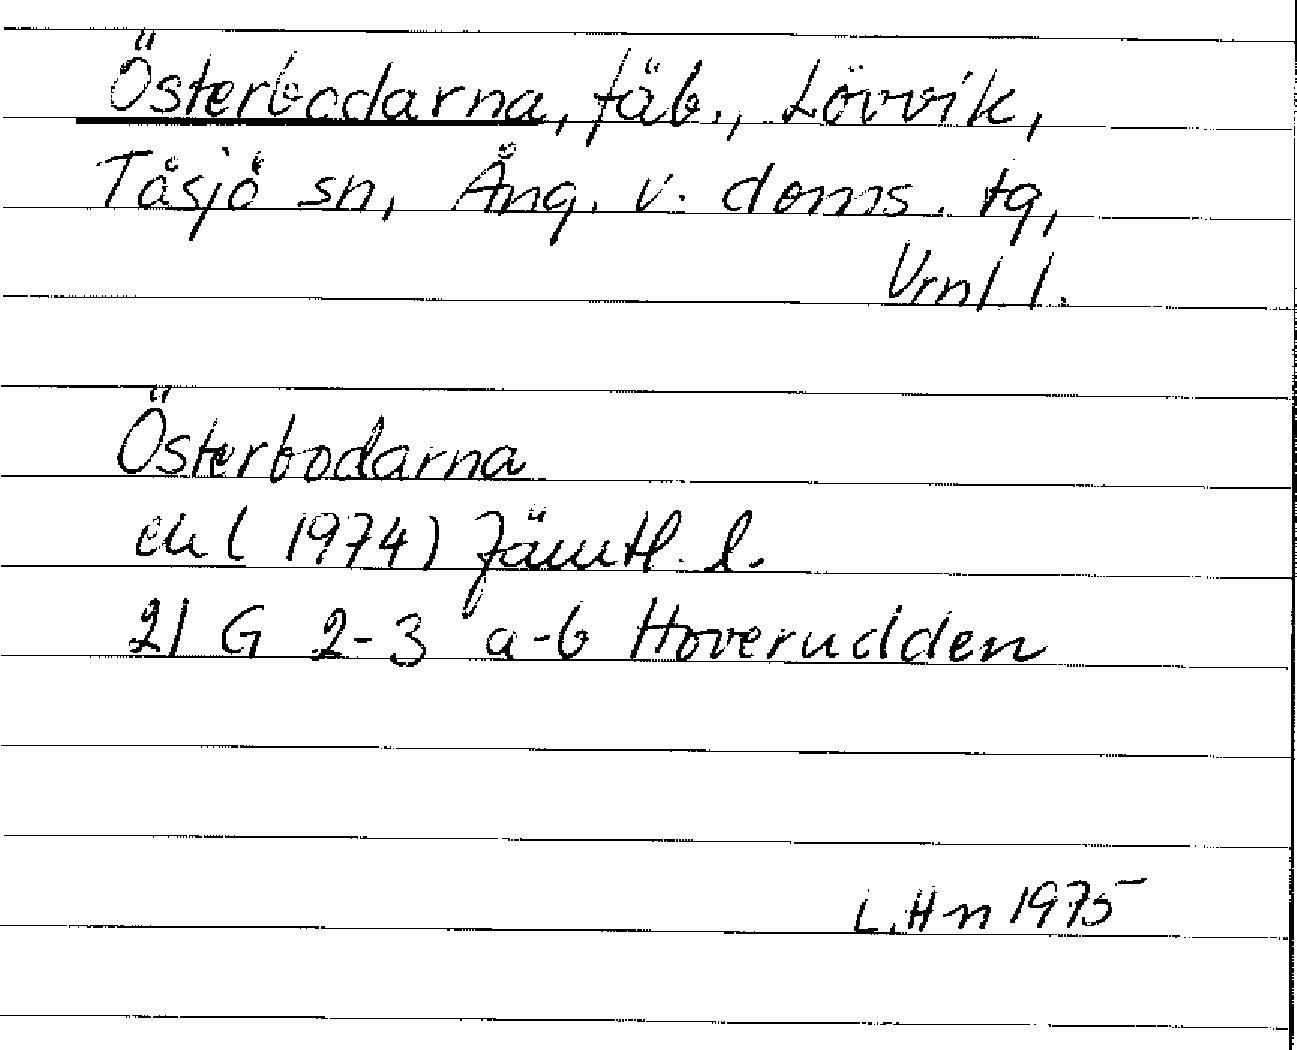 Österbodarna, fäb., Lövvik,
Tåsjö sn, Ång. v. doms. tg,
Vrnl l.
Österbodarna
ek (1974) Jämtl. l.
21 G 2-3 a-b Hoverudden
L.Hn 1975